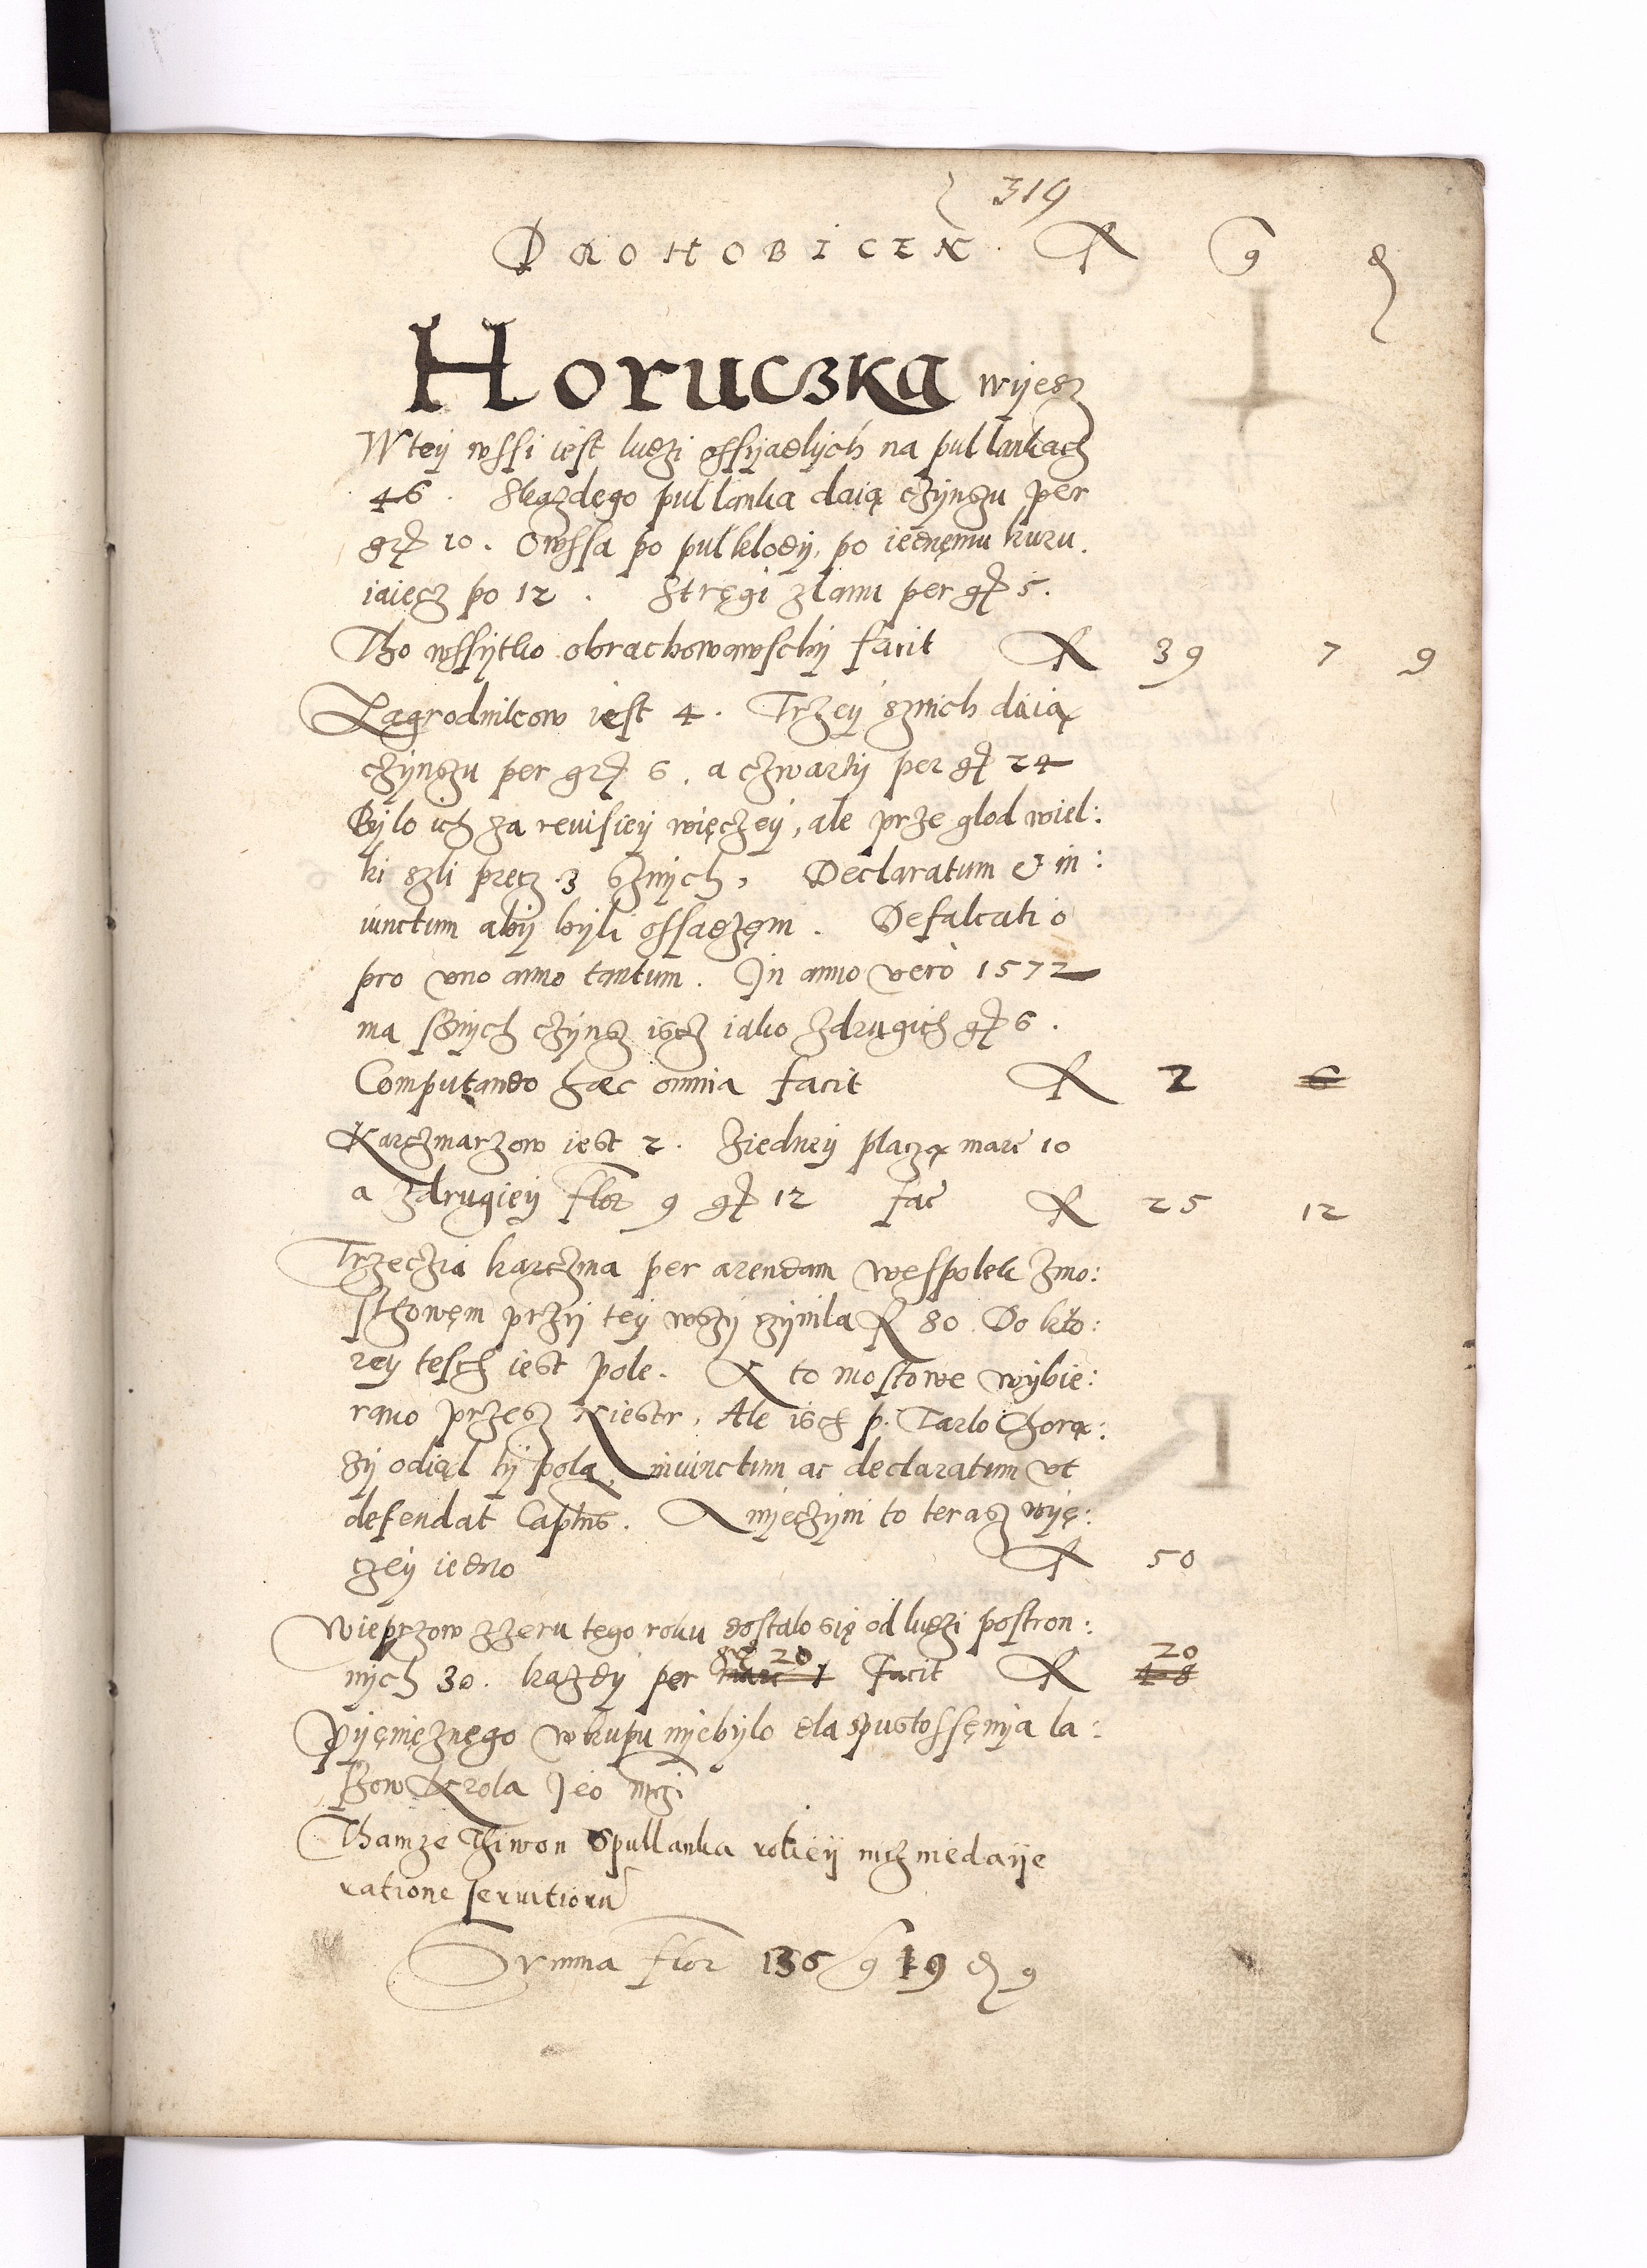 319
DROHOBICEN.
Horuczka wijesz
W teij wssi iest ludzi ossijadlijch na pul lankach
46. Skazdego pul lanka daią czijnszu per
gr 10. Owssa po pul klodij, po iednęmu kuru.
iaięcz po 12. Stręgi z lanu per gr 5.
Tho wssijtko obrachowawschij facit 39 7 9
Zagrodnikow iest 4. Trzeij sznich daią
czijnszu per gr 6. a czwartij per gr 24
Bijlo ich za reuisieij więczeij, ale prze glod wiel:
ki szli precz 3 sznijch, Declaratum & in:
iunctum abij bijli ossadzęni. Defalcatio
pro vno anno tantum. In anno vero 1572
ma sznijch czijnsz iscz iako zdrugich gr 6.
Computando haec omnia facit 2 6
Karczmarzow iest 2. Ziedneij placzą marc 10
a zdrugieij flor 9 gr 12 fac 25 12
Trzeczia karczma per arendam wespolek zmo:
sthowęm przij teij wszij czijnila 80. Do kto:
reij tesch iest pole. A to mostowe wijbie:
rano przesz Niestr. Ale isch p. Tarlo Chorą:
zij odiąl tij pola, iniunctum ac declaratum vt
defendat Captnus. A nijeczijni to terasz wiję:
czeij iedno 50
Wieprzow zzeru tego roku dostalo się od ludzi postron:
nijch 30. kazdij per gr 20 marc 1 facit 20 48
Pijęniężnęgo wkupu nijebijlo dla spustossęnija la:
szow Krola Jeo mczi
Thamze Thiwon Spullanka rolieij niczniedaije
ratione seruitioru
Summa flor 136 g 19 d 9